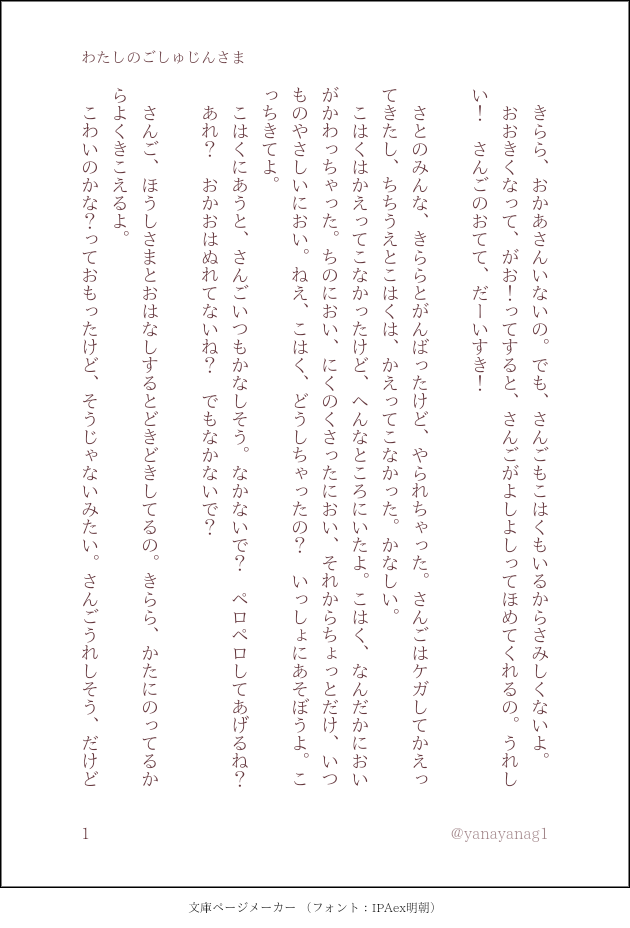 わたしのごしゅじんさま
　きらら、おかあさんいないの。でも、さんごもこはくもいるからさみしくないよ。
　おおきくなって、がお！ってすると、さんごがよしよしってほめてくれるの。うれし
い！　さんごのおてて、だーいすき！
　さとのみんな、きららとがんばったけど、やられちゃった。さんごはケガしてかえっ
てきたし、ちちうえとこはくは、かえってこなかった。かなしい。
　こはくはかえってこなかったけど、へんなところにいたよ。こはく、なんだかにおい
がかわっちゃった。ちのにおい、にくのくさったにおい、それからちょっとだけ、いつ
ものやさしいにおい。ねえ、こはく、どうしちゃったの？　いっしょにあそぼうよ。こ
っちきてよ。
　こはくにあうと、さんごいつもかなしそう。なかないで？　ペロペロしてあげるね？
　あれ？　おかおはぬれてないね？　でもなかないで？
　さんご、ほうしさまとおはなしするとどきどきしてるの。きらら、かたにのってるか
らよくきこえるよ。
　こわいのかな？っておもったけど、そうじゃないみたい。さんごうれしそう、だけど
1
@yanayanag1
文庫ページメーカー （フォント：IPAex明朝）